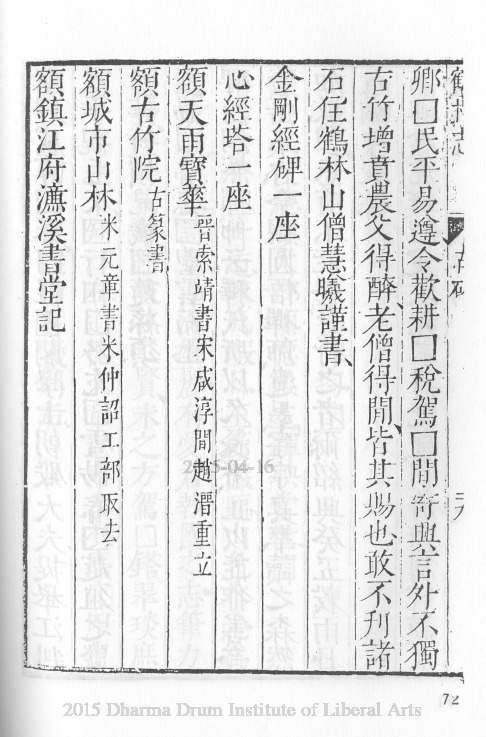 卿□民平易遵令歡耕□稅駕□閒寄興言外不獨
古竹增賁農父得醉老僧得閒皆其賜也敢不刋諸
石住鶴林山僧慧曦謹書
金剛經碑一座
心經塔一座
額天雨寶華晉索靖書宋咸淳間趙溍重立
額古竹院古篆書
額城市山林米元章書米仲詔工部取去
額鎮江府濂溪書堂記
2015-04-16
72
2015 Dharma Drum Institute of Liberal Arts